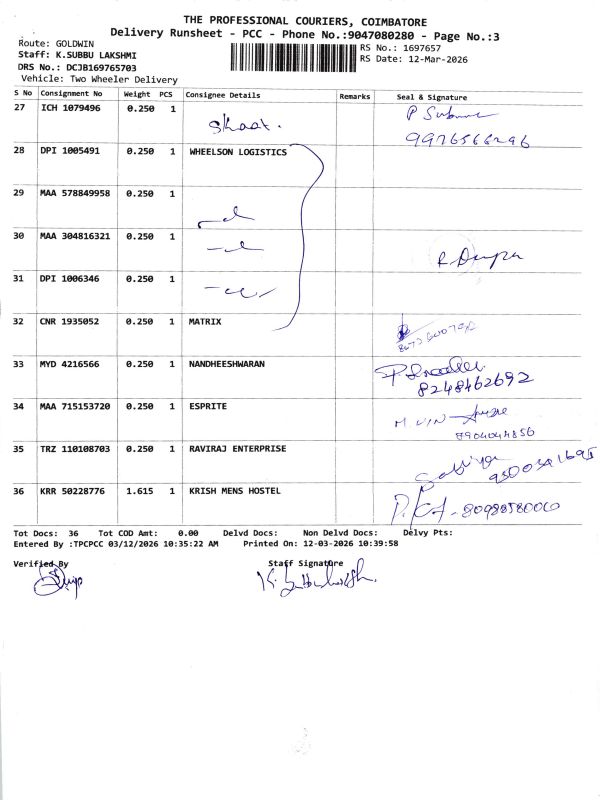 THE PROFESSIONAL COURIERS, COIMBATORE
Delivery Runsheet - PCC - Phone No.:9047080280 - Page No.:3
Route: GOLDWIN
Staff: K.SUBBU LAKSHMI
DRS No.: DCJB169765703
Vehicle: Two Wheeler Delivery
RS No.: 1697657
RS Date: 12-Mar-2026
S No Consignment No Weight PCS Consignee Details Remarks Seal & Signature
27 ICH 1079496 0.250 1
28 DPI 1005491 0.250 1 WHEELSON LOGISTICS
29 MAA 578849958 0.250 1
30 MAA 304816321 0.250 1
31 DPI 1006346 0.250 1
32 CNR 1935052 0.250 1 MATRIX
33 MYD 4216566 0.250 1 NANDHEESHWARAN 8248462692
34 MAA 715153720 0.250 1 ESPRITE 8904044856
35 TRZ 110108703 0.250 1 RAVIRAJ ENTERPRISE
36 KRR 50228776 1.615 1 KRISH MENS HOSTEL
Tot Docs: 36 Tot COD Amt: 0.00 Delvd Docs: Non Delvd Docs: Delvy Pts:
Entered By :TPCPCC 03/12/2026 10:35:22 AM Printed On: 12-03-2026 10:39:58
Verified By Staff Signature